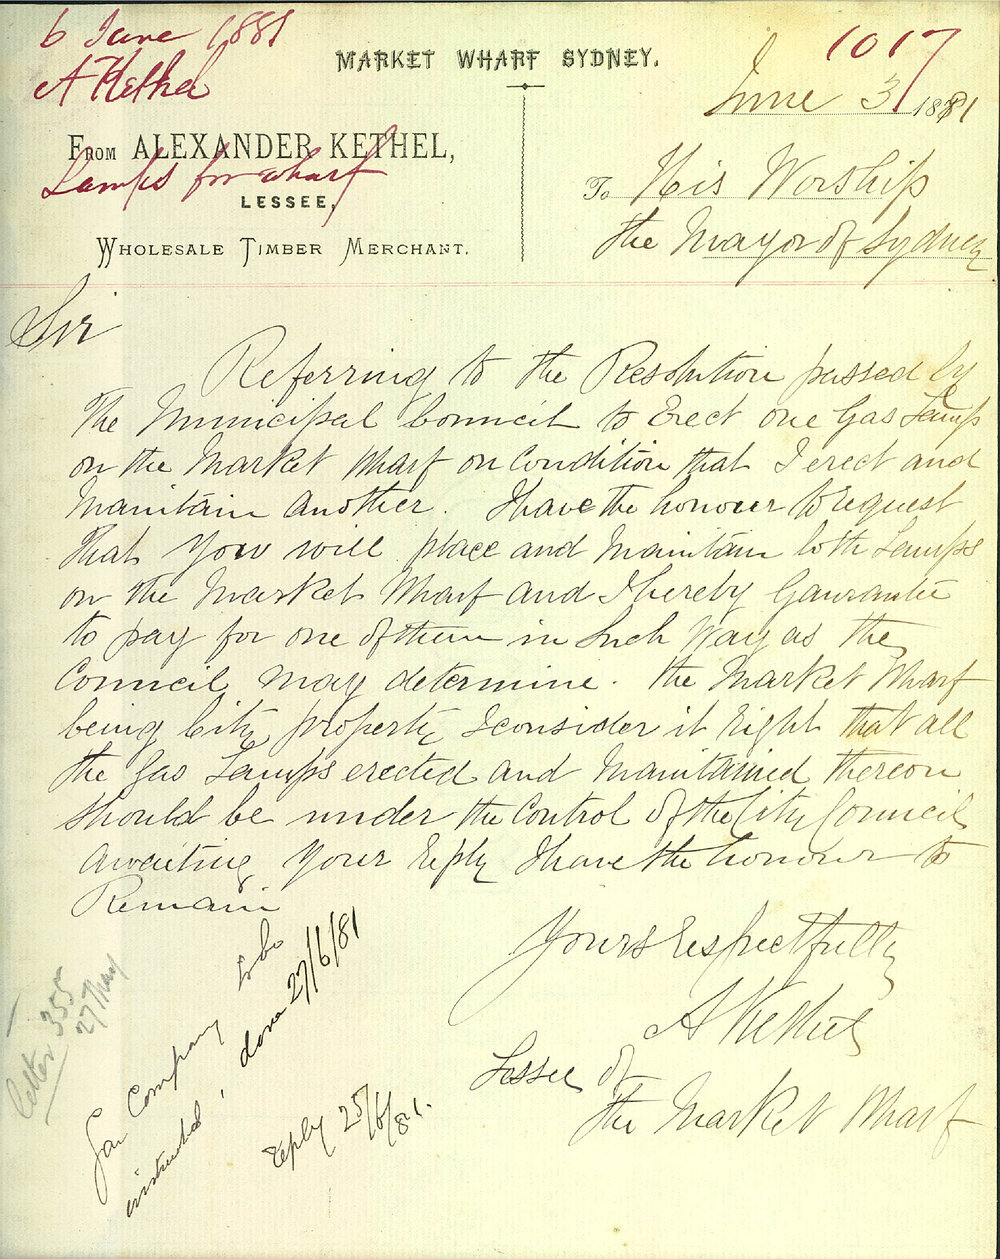 6 June 1881
A Kethel
Lamps for wharf
1017
MARKET WHARF SYDNEY.
June 3 1881
FROM ALEXANDER KETHEL,
LESSEE,
WHOLESALE TIMBER MERCHANT.
To His Worship
the Mayor of Sydney
Sir
Referring to the Resolution passed by
The Municipal Council to Erect one Gas Lamp
on the Market Wharf on Condition that I erect and
Maintain another. I have the honour to request
that you will place and Maintain both Lamps
on the Market Wharf and I hereby Gaurantee
to pay for one of them in Such Way as the
Council may determine. the Market Wharf
being City property I consider it right that all
the Gas Lamps erected and Maintained thereon
should be under the Control of the City Council
awaiting your reply I have the honour to
Remain
Yours respectfully
A Kethel
Lessee of
the Market Wharf
Letter 355
27 May
Gas Company to be
instructed, done 27/6/81
reply 25/6/81.